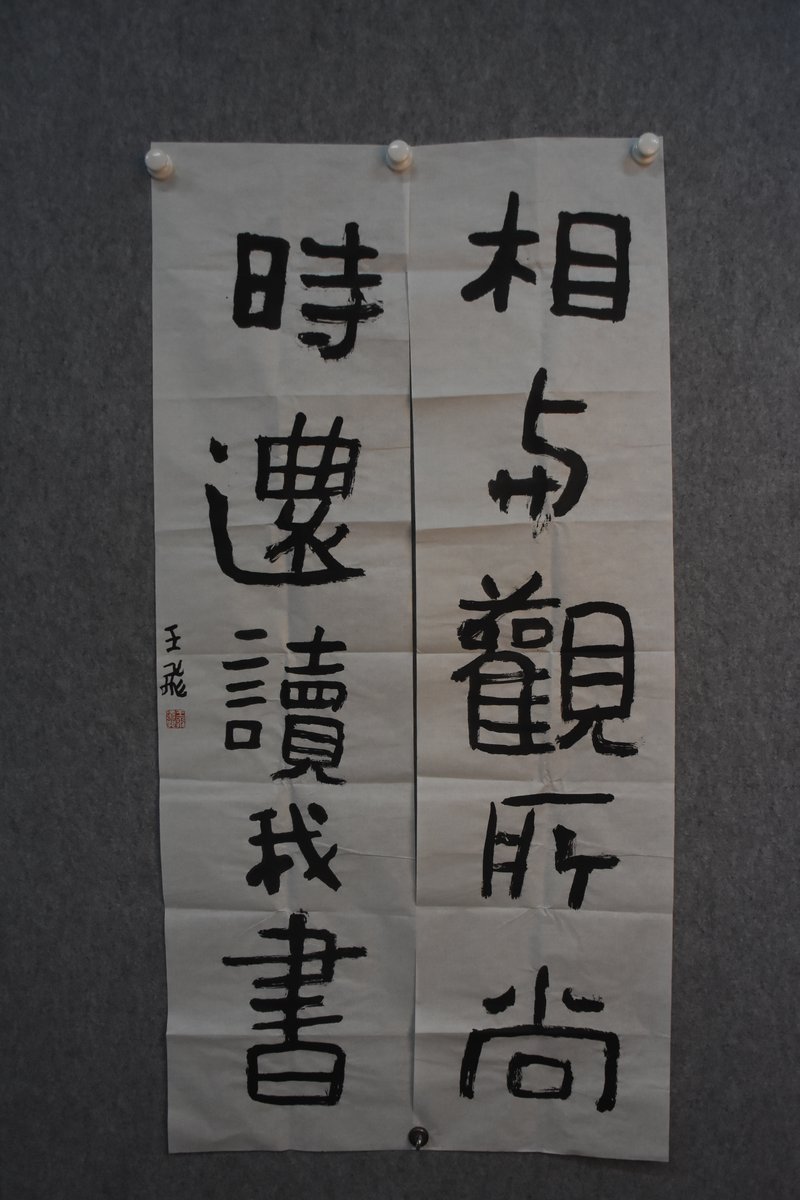 相与觀所尚
時還讀我書
王飛